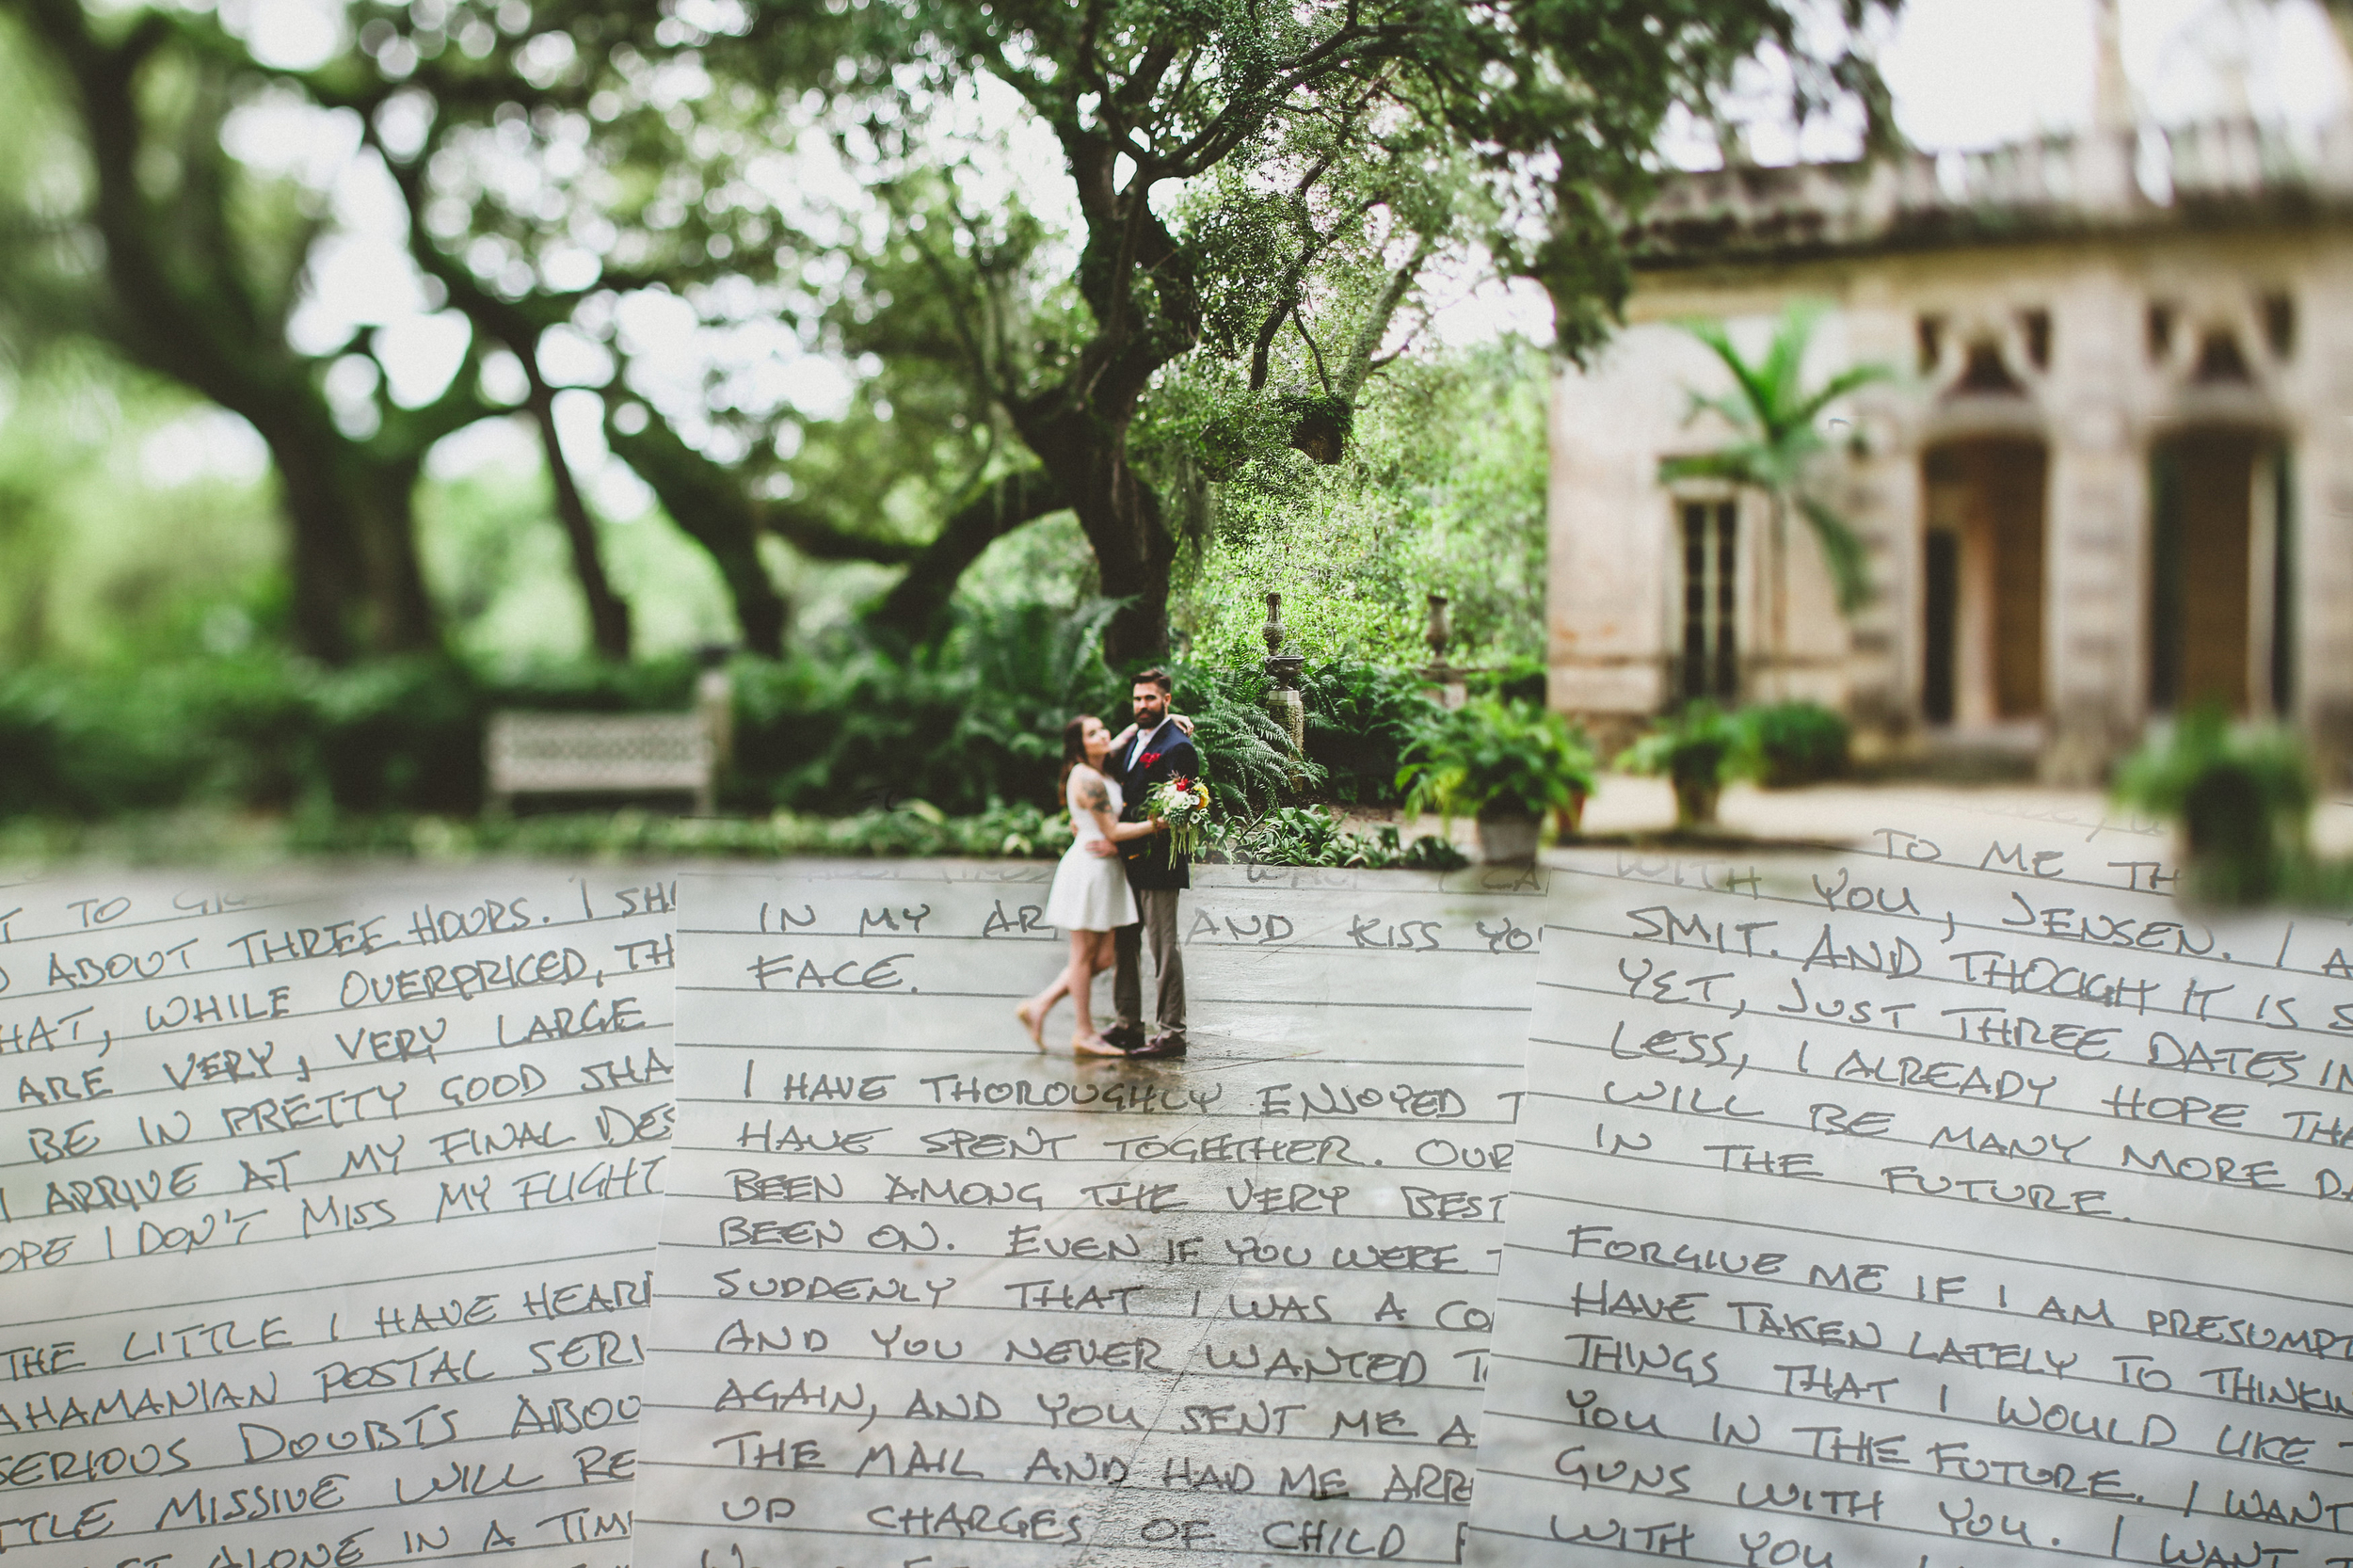 TO
ABOUT THREE HOURS. I SH
HAT, WHILE OVERPRICED, TH
ARE VERY, VERY LARGE
BE IN PRETTY GOOD SHA
I ARRIVE AT MY FINAL DES
OPE I DON'T MISS MY FLIGHT
THE LITTLE I HAVE HEAR
AHAMANIAN POSTAL SERI
SERIOUS DOUBTS ABOU
TTLE MISSIVE WILL RE
ALONE IN A TIM
IN MY AR AND KISS YO
FACE.
I HAVE THOROUGHLY ENJOYED T
HAVE SPENT TOGETHER. OUR
BEEN AMONG THE VERY BEST
BEEN ON. EVEN IF YOU WERE T
SUDDENLY THAT I WAS A CO
AND YOU NEVER WANTED T
AGAIN, AND YOU SENT ME A
THE MAIL AND HAD ME ARR
UP CHARGES OF CHILD P
TO ME TH
WITH YOU, JENSEN. I A
SMIT. AND THOUGH IT IS S
YET, JUST THREE DATES IN
LESS, I ALREADY HOPE THA
WILL BE MANY MORE DA
IN THE FUTURE.
FORGIVE ME IF I AM PRESUMPT
HAVE TAKEN LATELY TO THINKIN
THINGS THAT I WOULD LIKE T
YOU IN THE FUTURE. I WANT
GUNS WITH YOU. I WANT
WITH YOU